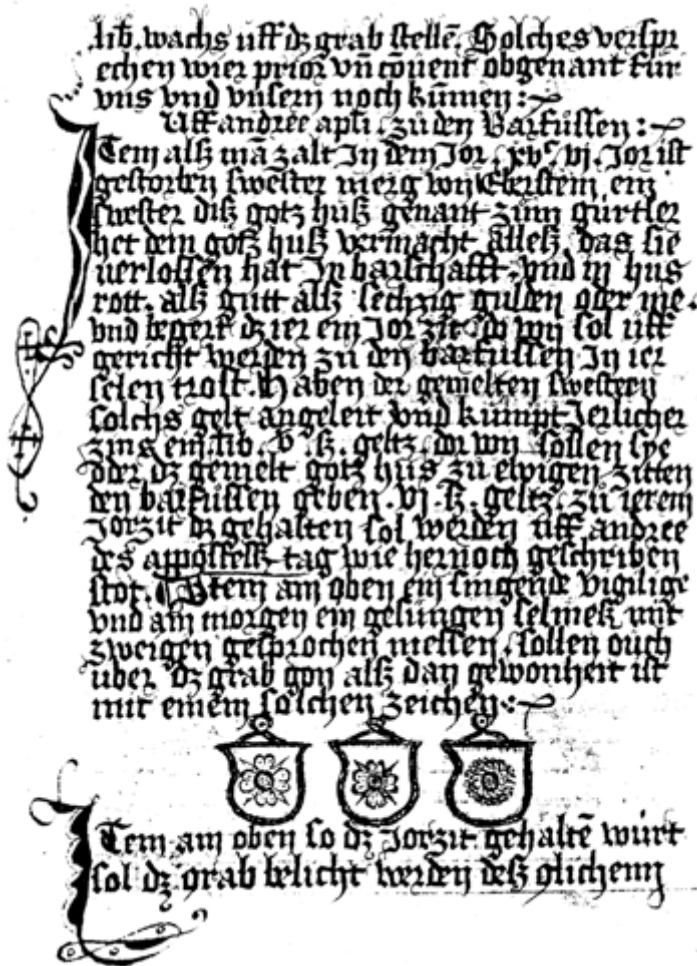 lib. wachs uff dz grab stellē. Solches verspr
echen wier prior vn̄ cōuent obgenant fur
vns vnd vnsern noch kūmen :~
Uff andree apl̄i. zu den Barfussen :~
Item alß mā zalt In dem Jor. xvc. vj. Jor ist
gestorben swester merg von Eberstein ein
swester diß gotz huß genant zum gürtler
het dem gotz huß vermacht alleß das sie
uerlossen hat In barschafft. vnd in hus
rott. alß gutt alß sechzig gulden oder me.
vnd begert dz ier ein Jor zit do von sol uff
gericht werden zu den barfussen In ier
selen trost. Haben der gemelten swestern
solchs gelt angeleit vnd kumpt Jerlicher
zins ein. lib. v. ß. geltz. dor von sollen sye
oder dz gemelt gotz hus zu ewigen zitten
den barfussen geben. vj. ß. geltz. zu ierem
Jorzit dz gehalten sol werden uff andree
des appostelß tag wie hernoch geschriben
stot. Item am oben ein singende vigilige
vnd am morgen ein gesungen selmeß mit
zweigen gesprochen messen. sollen ouch
uber dz grab gon alß dan gewonheit ist
mit einem solchen zeichen :~
Item am oben so dz Jorzit gehaltē würt
sol dz grab belicht werden deß glichenn